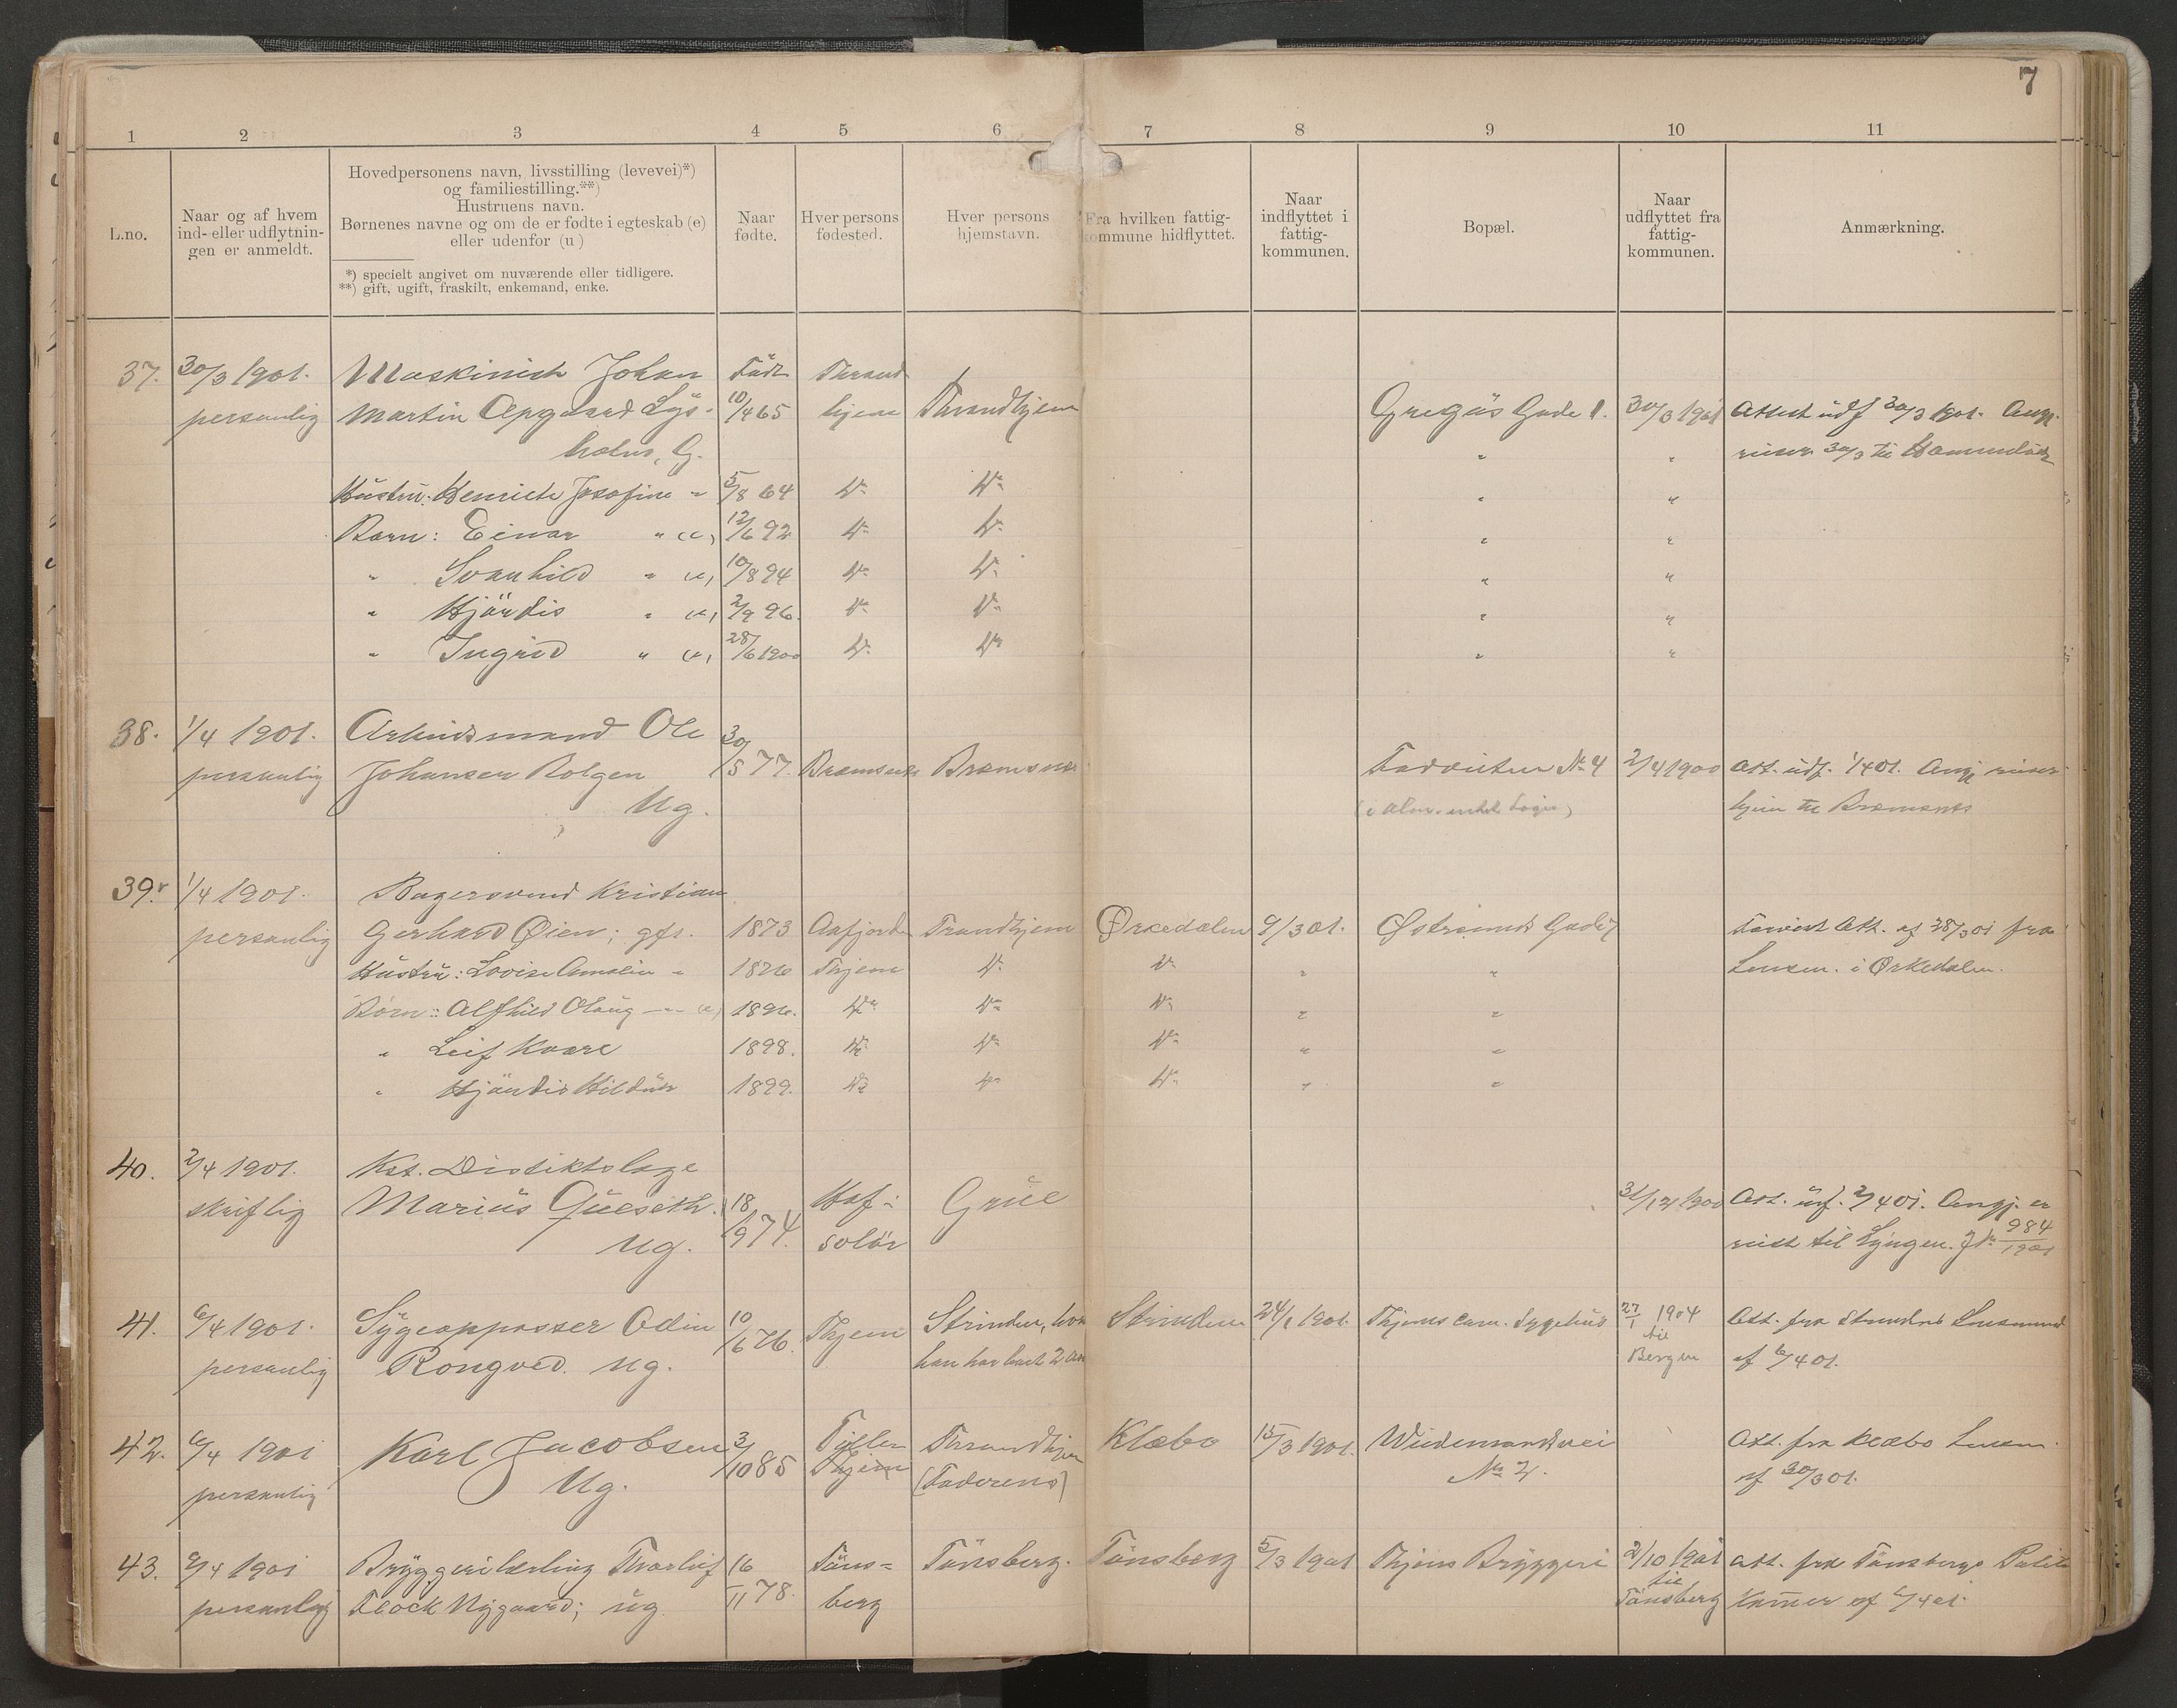 7
1 2 3 4 5 6 7 8 9 10 11
L.no.
Naar og af hvem
ind- eller udflytnin-
gen er anmeldt.
Hovedpersonens navn, livsstilling (levevei)*)
og familiestilling.**)
Hustruens navn.
Børnenes navne og om de er fødte i egteskab (e)
eller udenfor (u)
*) specielt angivet om nuværende eller tidligere.
**) gift, ugift, fraskilt, enkemand, enke.
Naar
fødte.
Hver persons
fødested.
Hver persons
hjemstavn.
Fra hvilken fattig-
kommune hidflyttet.
Naar
indflyttet i
fattig-
kommunen.
Bopæl.
Naar
udflyttet fra
fattig-
kommunen.
Anmærkning.
37. 30/3 1901. Maskinist Johan Født Thrond
personlig Martin Lys- 10/4 65 hjem Throndhjem Gade 1. 30/3 1901 Attest udf 30/3 1901. Angj.
holm, G. " " 30/3 til
Hustru: Henriette Josefine " 5/8 64 Do Do " "
Børn: Einar " (e) 12/6 92 Do Do " "
" Svanhild " (e) 10/8 94 Do Do " "
" Hjördis " (e) 2/9 96. Do Do " "
" Ingrid " (e) 28/6 1900 Do Do " "
38. 1/4 1901. Arbeidsmand Ole 30
personlig Johansen Rolgen /5 77. Bremsnes Bremsnes No 4 2/4 1900 Att. udf. 1/4 01. Angj. reiser
Ug. hjem til Bremsnes
39. 1/4 1901. Bagersvend Kristian
personlig Gerhard Øien; gft. 1873 Aafjorden Trondhjem Ørkedalen 9/3 01. Østersunds Gade 7 Forevist Att. af 28/3 01 fra
Hustru: Lovise Amalie " Thjem Do Do " " Lensm. i Ørkedalen.
Børn: Alfhild Olaug (e) 1896. Do Do Do " "
" Leif Kaare 1898. Do Do Do " "
" Hjördis Hildur 1899. Do Do Do " "
40. 2/4 1901. Kst. Distiktslæge
skriftlig Marius Queseth. 18 Hof- Grue 31/12 1900 Att. udf. 2/4 01. Angj. er
ug. /9 74. solør reist til Lyngen. J No 984/1901
41. 6/4 1901. Sygeopasser Odin 10 Thjem Strinden, hvor Strinden 24/1 1901. Thjems Sygehus 27/1 1904 Att. fra Lensmand
personlig Rongved. ug. /6 76. han har boet 2 aar til Bergen af 6/4 01.
42. 6/4 1901 Karl Jacobsen 3 Tiller Throndhjem Klæbo 15/3 1901. Wiedemandsvei Att. fra Klæbo Lensm.
personlig Ug. /10 85 Thjem (Faderens) No 2. af 30/3 01.
43. 6/4 1901 Bryggerilærling Thorleif 16 Töns- Tönsberg. Tönsberg 5/3 1901 Thjems Bryggeri 2/10 1901 att. fra Tönsbergs Politi
personlig Flock Nygaard; ug /11 78. berg til Tönsberg Kammer af 4 01.